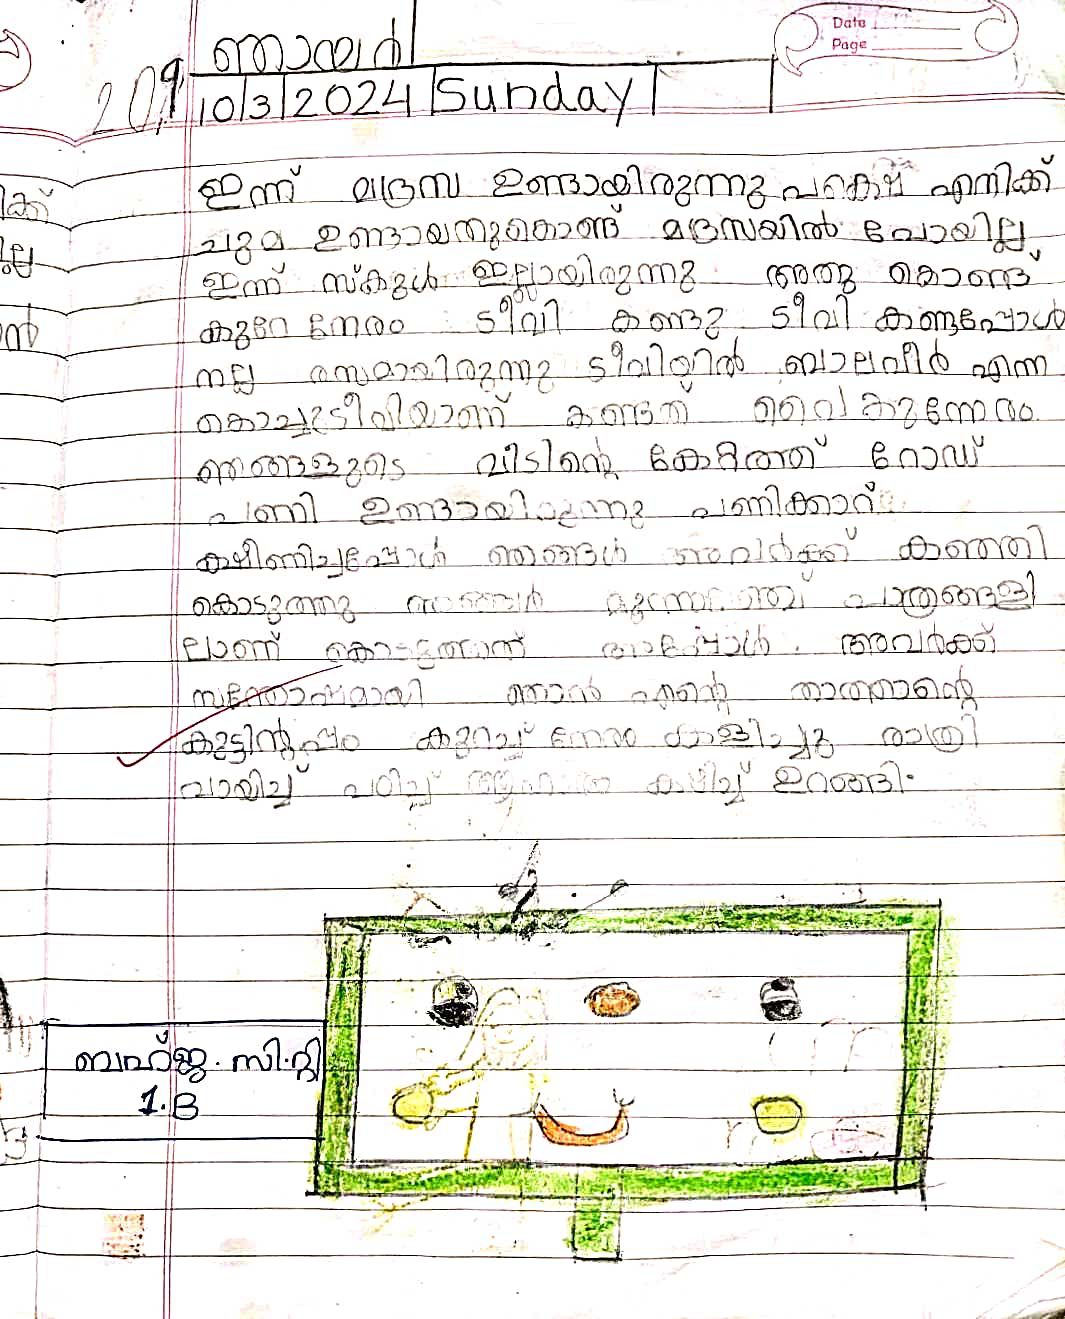 Date
Page
ഞായർ
209
10/3/2024 Sunday
ഇന്ന് മദ്രസ ഉണ്ടായിരുന്നു എനിക്ക്
ചുമ ഉണ്ടായതുകൊണ്ട് മദ്രസയിൽ പോയില്ല
ഇന്ന് സ്കൂൾ ഇല്ലായിരുന്നു അതു കൊണ്ട്
കുറേ നേരം ടീവി കണ്ടു ടീവി കണ്ടപ്പോൾ
നല്ല രസമായിരുന്നു ടീവിയിൽ ബാലവീർ എന്ന
കൊച്ചുടീവിയാണ് കണ്ടത് വൈകുന്നേരം
ഞങ്ങളുടെ വീടിന്റെ റോഡ്
പണി ഉണ്ടായിരുന്നു പണിക്കാറ്
ക്ഷീണിച്ചപ്പോൾ ഞങ്ങൾ അവർക്ക് കഞ്ഞി
കൊടുത്തു ഞങ്ങൾ പാത്രങ്ങളി
ലാണ് കൊടുത്തത് അപ്പോൾ അവർക്ക്
സന്തോഷമായി ഞാൻ എന്റെ താത്താന്റെ
കൂട്ടിന്റൊപ്പം കുറച്ച് നേരം കളിച്ചു രാത്രി
വായിച്ച് പഠിച്ച് കഴിച്ച് ഉറങ്ങി.
ബഹ്ജ. സി.റ്റി
1.B